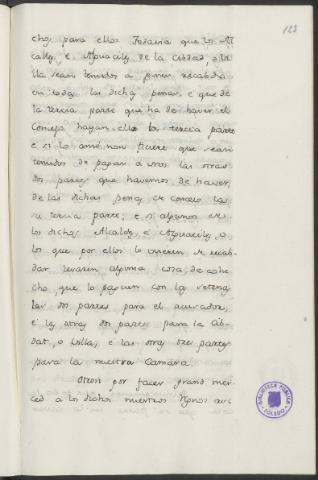 123
chos para ellos. Todavia que los Al
caldes, e Alguaciles de la Cibdad, o Vi
lla sean tenudos a poner recabdo
en todas las dichas penas, e que de
la tercia parte que ha de haver el
Consejo hayan ellos la tercia parte
e si lo ansi non ficiere que sean
tenudos de pagar a Nos las otras
dos partes que havemos de haver
de las dichas penas, e al concejo la
su tercia parte; e si algunos de
los dichos Alcaldes, e Alguaciles, o
los que por ellos lo ovieren de recab
dar levaren alguna cosa, de cohe
cho, que lo paguen con las setenas
las dos partes para el acusador,
e las otras dos partes para la Cib
dat, o Villa, e las otras tres partes
para la nuestra Camara.
Otrosi por facer grand mer
ced a los dichos nuestros Regnos
BIBLIOTECA PUBLICA
TOLEDO